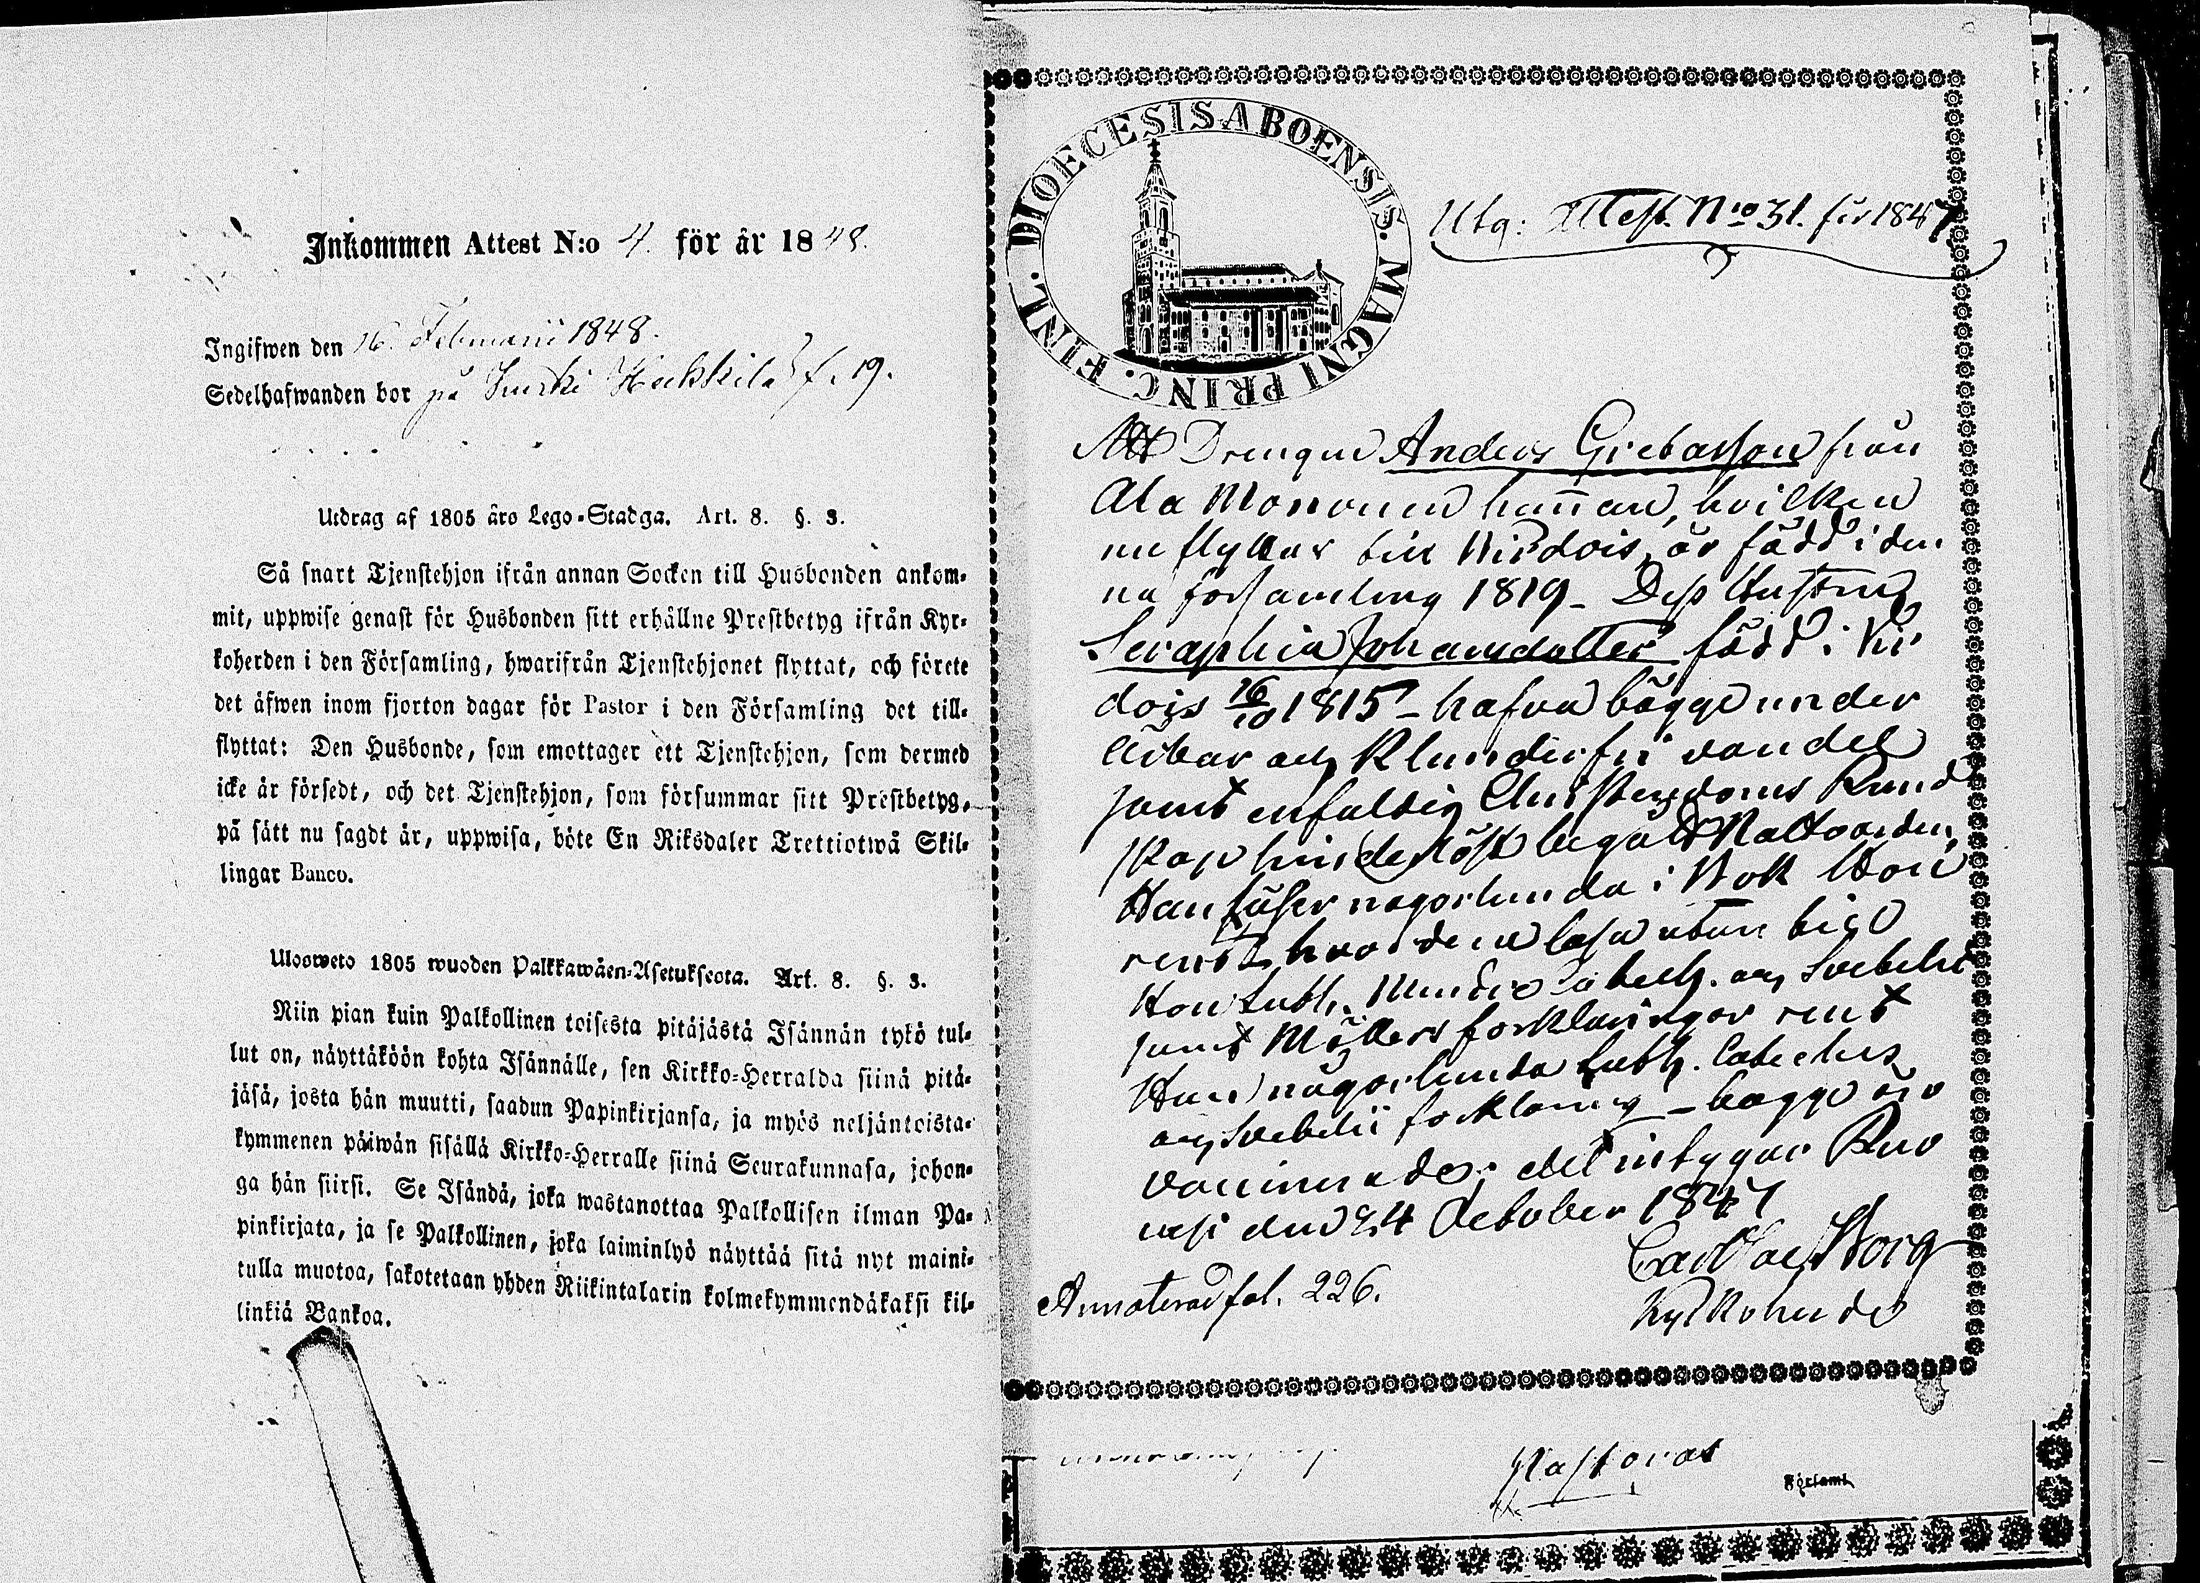 Inkommen Attest N:o 4. för år 1848.
Ingifwen den 16. Februarii 1848.
Sedelhafwanden bor på Hekkilä f. 19.
Utdrag af 1805 års Lego-Stadga. Art. 8. §. 3.
Så snart Tjenstehjon ifrån annan Socken till Husbonden ankom-
mit, uppwise genast för Husbonden sitt erhållne Prestbetyg ifrån Kyr-
koherden i den Församling, hwarifrån Tjenstehjonet flyttat, och förete
det äfwen inom fjorton dagar för Pastor i den Församling det till-
flyttat: Den Husbonde, som emottager ett Tjenstehjon, som dermed
icke är försedt, och det Tjenstehjon, som försummar sitt Prestbetyg,
på sätt nu sagdt är, uppwisa, böte En Riksdaler Trettiotwå Skil-
lingar Banco.
Ulosweto 1805 wuoden Palkkawäen-Asetuksesta. Art. 8. §. 3.
Niin pian kuin Palkollinen toisesta pitäjästä Isännän tykö tul-
lut on, näyttäköön kohta Isännälle, sen Kirkko-Herralda siinä pitä-
jäsä, josta hän muutti, saadun Papinkirjansa, ja myös neljäntoista-
kymmenen päiwän sisällä Kirkko-Herralle siinä Seurakunnasa, johon-
ga hän siirsi. Se Isändä, joka wastanottaa Palkollisen ilman Pa-
pinkirjata, ja se Palkollinen, joka laiminlyö näyttää sitä nyt maini-
tulla muotoa, sakotetaan yhden Riikintalarin kolmekymmendäkaksi kil-
linkiä Bankoa.
DIOECESIS ABOENSIS. MAGNI PRINC. FINL.
Utg: Attest. No 31. för 1847
Att Drengen Anders Giebasson från
Ala Mononen hemman, hvilken
nu flyttar till Virdois, är född i den
na församling 1819 - Dess Hustru
Seraphia Johansdotter född i Vir
dois 16/10 1815 - hafva bägge under
ärbar och klanderfri vandel
samt enfaldig Christendoms Kund
skap hinderlöst begått Nattvarden,
Han läser någorlunda i Bok Hon
rent hvardera läsa utan bok
Hon Luth. Mindre Catech. och Svebelii
samt Möllers förklaringar rent
Han någorlunda Luth. Catechis
och Svebelii förklaring - bägge äro
vaccinerade; det intygar Ruo
vesi den 24 October 1847
Carl Borg
Kyrkoherde
Annoterad fol. 226.
Pastorat
Församl.